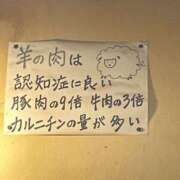 羊の肉は
認知症に良い
豚肉の9倍 牛肉の3倍
カルニチンの量が多い